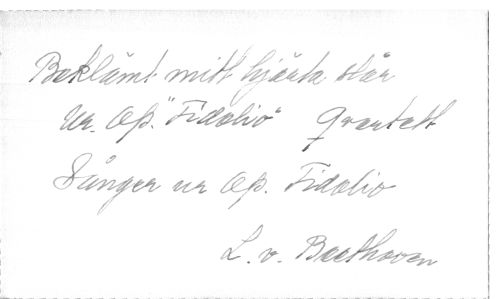 Beklämt mitt hjärta står
ur. Op. "Fidelio" Qvartett
Sånger ur Op. Fidelio
L. v. Beethoven